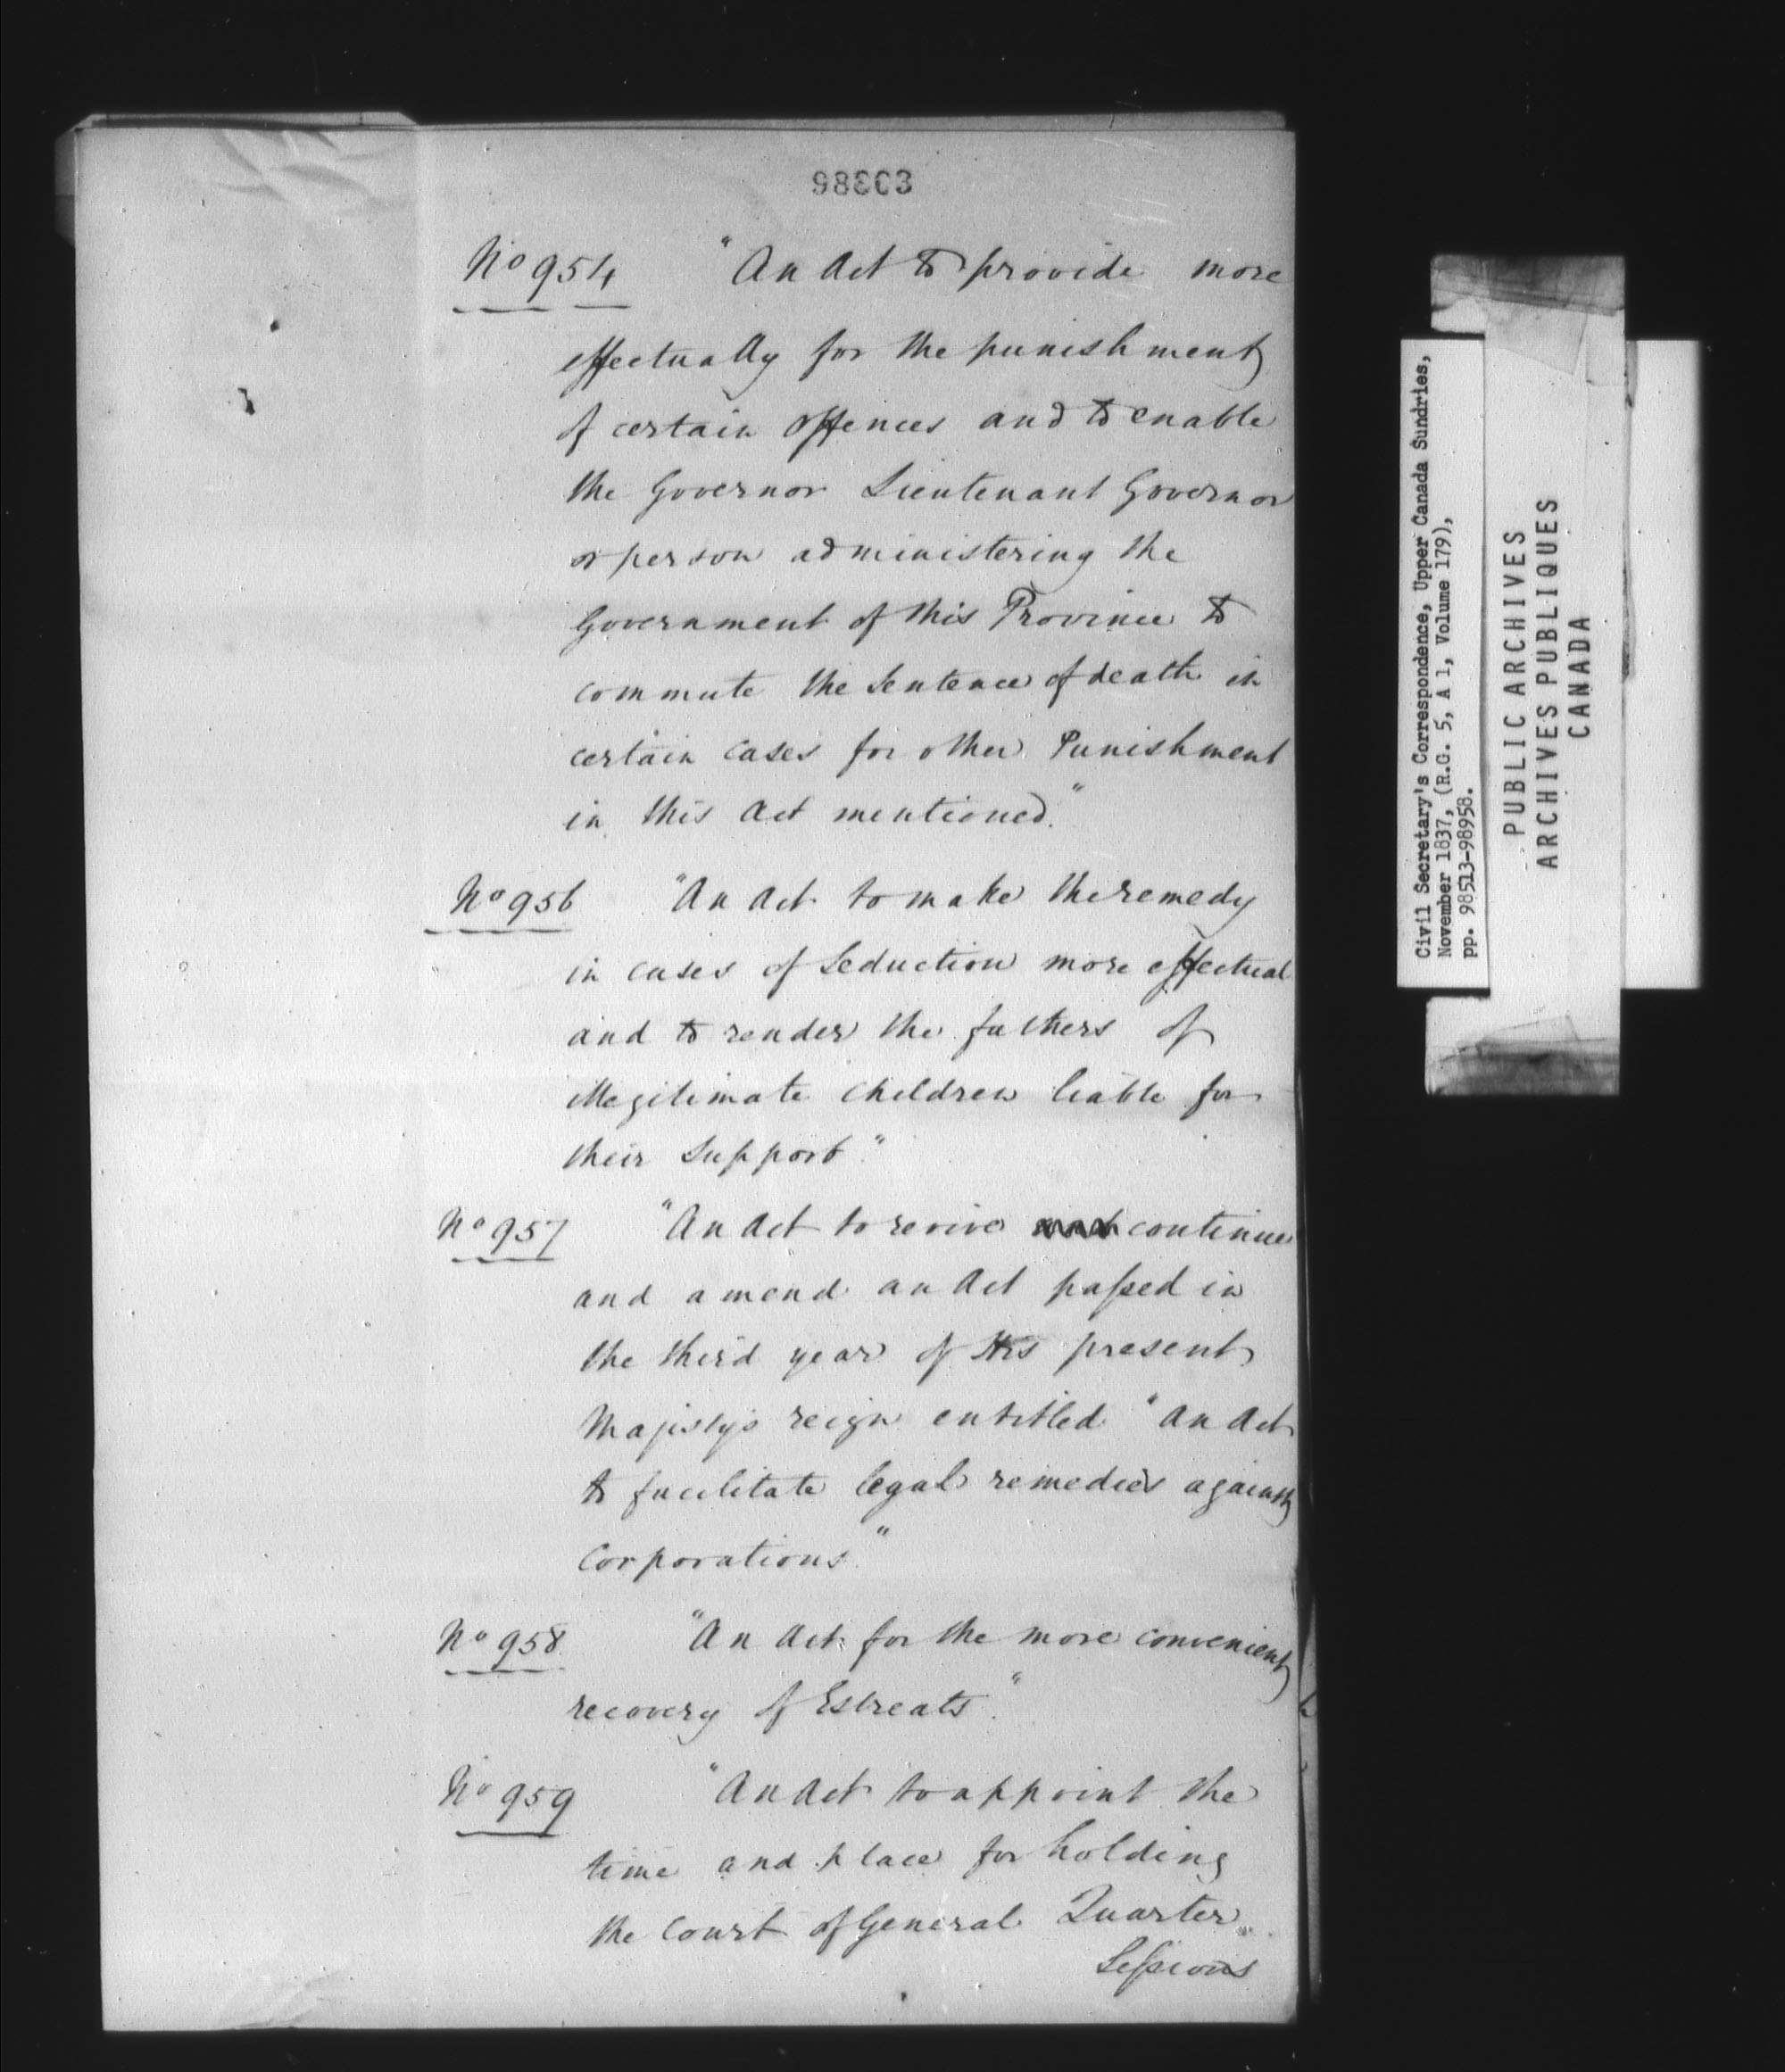 98803
No 954 "An Act to provide more
effectually for the punishment
of certain offences and to enable
the Governor Lieutenant Governor
or person administering the
Government of this Province to
commute the Sentence of death in
certain cases for other Punishment
in this Act mentioned."
No 956 "An Act to make the remedy
in cases of Seduction more effectual
and to render the fathers of
illegitimate children liable for
their Support."
No 957 "An Act to revive continue
and amend an Act passed in
the third year of His present
Majesty's reign entitled "An Act
to facilitate legal remedies against
Corporations"
No 958 "An Act for the more convenient
recovery of Estreats."
No 959 "An Act to appoint the
time and place for holding
the Court of General Quarter
Sessions
Civil Secretary's Correspondence, Upper Canada Sundries,
November 1837, (R.G. 5, A 1, Volume 179),
pp. 98513-98958.
PUBLIC ARCHIVES
ARCHIVES PUBLIQUES
CANADA